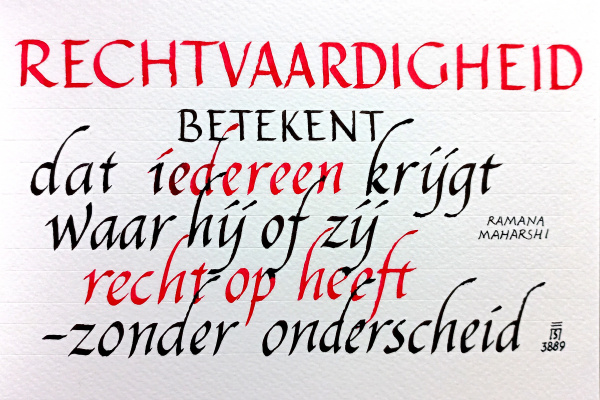 RECHTVAARDIGHEID
BETEKENT
dat iedereen krijgt
waar hij of zij
RAMANA
MAHARSHI
recht op heeft
-zonder onderscheid
[S]
3889